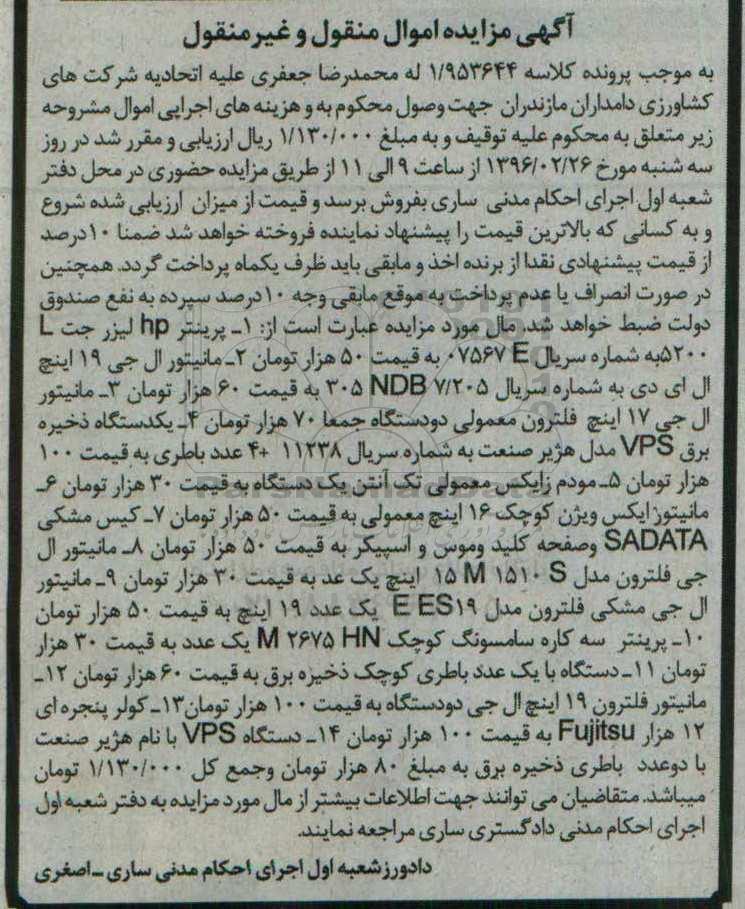 آگهی مزایده اموال منقول و غیرمنقول
به موجب پرونده کلاسه ۱/۹۵۳۶۴۴ له محمدرضا جعفری علیه اتحادیه شرکت های
کشاورزی دامداران مازندران جهت وصول محکوم به و هزینه های اجرایی اموال مشروحه
زیر متعلق به محکوم علیه توقیف و به مبلغ ۱/۱۳۰/۰۰۰ ریال ارزیابی و مقرر شد در روز
سه شنبه مورخ ۱۳۹۶/۰۲/۲۶ از ساعت ۹ الی ۱۱ از طریق مزایده حضوری در محل دفتر
شعبه اول اجرای احکام مدنی ساری بفروش برسد و قیمت از میزان ارزیابی شده شروع
و به کسانی که بالاترین قیمت را پیشنهاد نماینده فروخته خواهد شد ضمنا ۱۰درصد
از قیمت پیشنهادی نقدا از برنده اخذ و مابقی باید ظرف یکماه پرداخت گردد. همچنین
در صورت انصراف یا عدم پرداخت به موقع مابقی وجه ۱۰درصد سپرده به نفع صندوق
دولت ضبط خواهد شد. مال مورد مزایده عبارت است از: ۱ـ پرینتر hp لیزر جت L
۵۲۰۰به شماره سریال E ۰۷۵۶۷ به قیمت ۵۰ هزار تومان ۲ـ مانیتور ال جی ۱۹ اینچ
ال ای دی به شماره سریال ۷/۲۰۵ NDB ۳۰۵ به قیمت ۶۰ هزار تومان ۳ـ مانیتور
ال جی ۱۷ اینچ فلترون معمولی دودستگاه جمعا ۷۰ هزار تومان ۴ـ یکدستگاه ذخیره
برق VPS مدل هژیر صنعت به شماره سریال ۱۱۲۳۸ +۴ عدد باطری به قیمت ۱۰۰
هزار تومان ۵ـ مودم زایکس معمولی تک آنتن یک دستگاه به قیمت ۳۰ هزار تومان ۶ـ
مانیتور ایکس ویژن کوچک ۱۶ اینچ معمولی به قیمت ۵۰ هزار تومان ۷ـ کیس مشکی
SADATA وصفحه کلید وموس و اسپیکر به قیمت ۵۰ هزار تومان ۸ـ مانیتور ال
جی فلترون مدل ۱۵ M ۱۵۱۰ S اینچ یک عد به قیمت ۳۰ هزار تومان ۹ـ مانیتور
ال جی مشکی فلترون مدل E ES۱۹ یک عدد ۱۹ اینچ به قیمت ۵۰ هزار تومان
۱۰ـ پرینتر سه کاره سامسونگ کوچک M ۲۶۷۵ HN یک عدد به قیمت ۳۰ هزار
تومان ۱۱ـ دستگاه با یک عدد باطری کوچک ذخیره برق به قیمت ۶۰ هزار تومان ۱۲ـ
مانیتور فلترون ۱۹ اینچ ال جی دودستگاه به قیمت ۱۰۰ هزار تومان۱۳ـ کولر پنجره ای
۱۲ هزار Fujitsu به قیمت ۱۰۰ هزار تومان ۱۴ـ دستگاه VPS با نام هژیر صنعت
با دوعدد باطری ذخیره برق به مبلغ ۸۰ هزار تومان وجمع کل ۱/۱۳۰/۰۰۰ تومان
میباشد. متقاضیان می توانند جهت اطلاعات بیشتر از مال مورد مزایده به دفتر شعبه اول
اجرای احکام مدنی دادگستری ساری مراجعه نمایند.
دادورزشعبه اول اجرای احکام مدنی ساری ـ اصغری